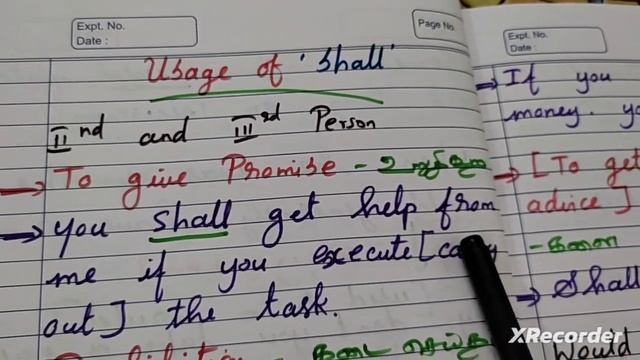 Expt. No.
Date :
Page No.
Usage of 'Shall'
IInd and IIIrd Person
→ To give Promise -
→ you shall get help from
me if you execute [carry
out] the task.
Expt. No.
Date :
→ If you
money. yo
→ [To get
advice]
→ Shall
would
XRecorder